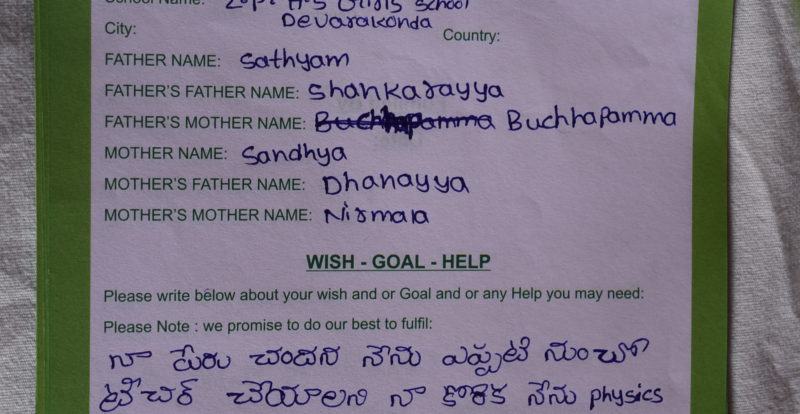 School Name: Z.p.  H.S Girls School
City: Devarakonda Country:
FATHER NAME: Sathyam
FATHER'S FATHER NAME: Shankarayya
FATHER'S MOTHER NAME: Buchhapamma Buchhapamma
MOTHER NAME: Sandhya
MOTHER'S FATHER NAME: Dhanayya
MOTHER'S MOTHER NAME: Nirmala
WISH - GOAL - HELP
Please write below about your wish and or Goal and or any Help you may need:
Please Note : we promise to do our best to fulfil:
నా పేరు చందన నేను ఎప్పటి నుంచో
టీచర్ చేయాలని నా కోరిక నేను physics